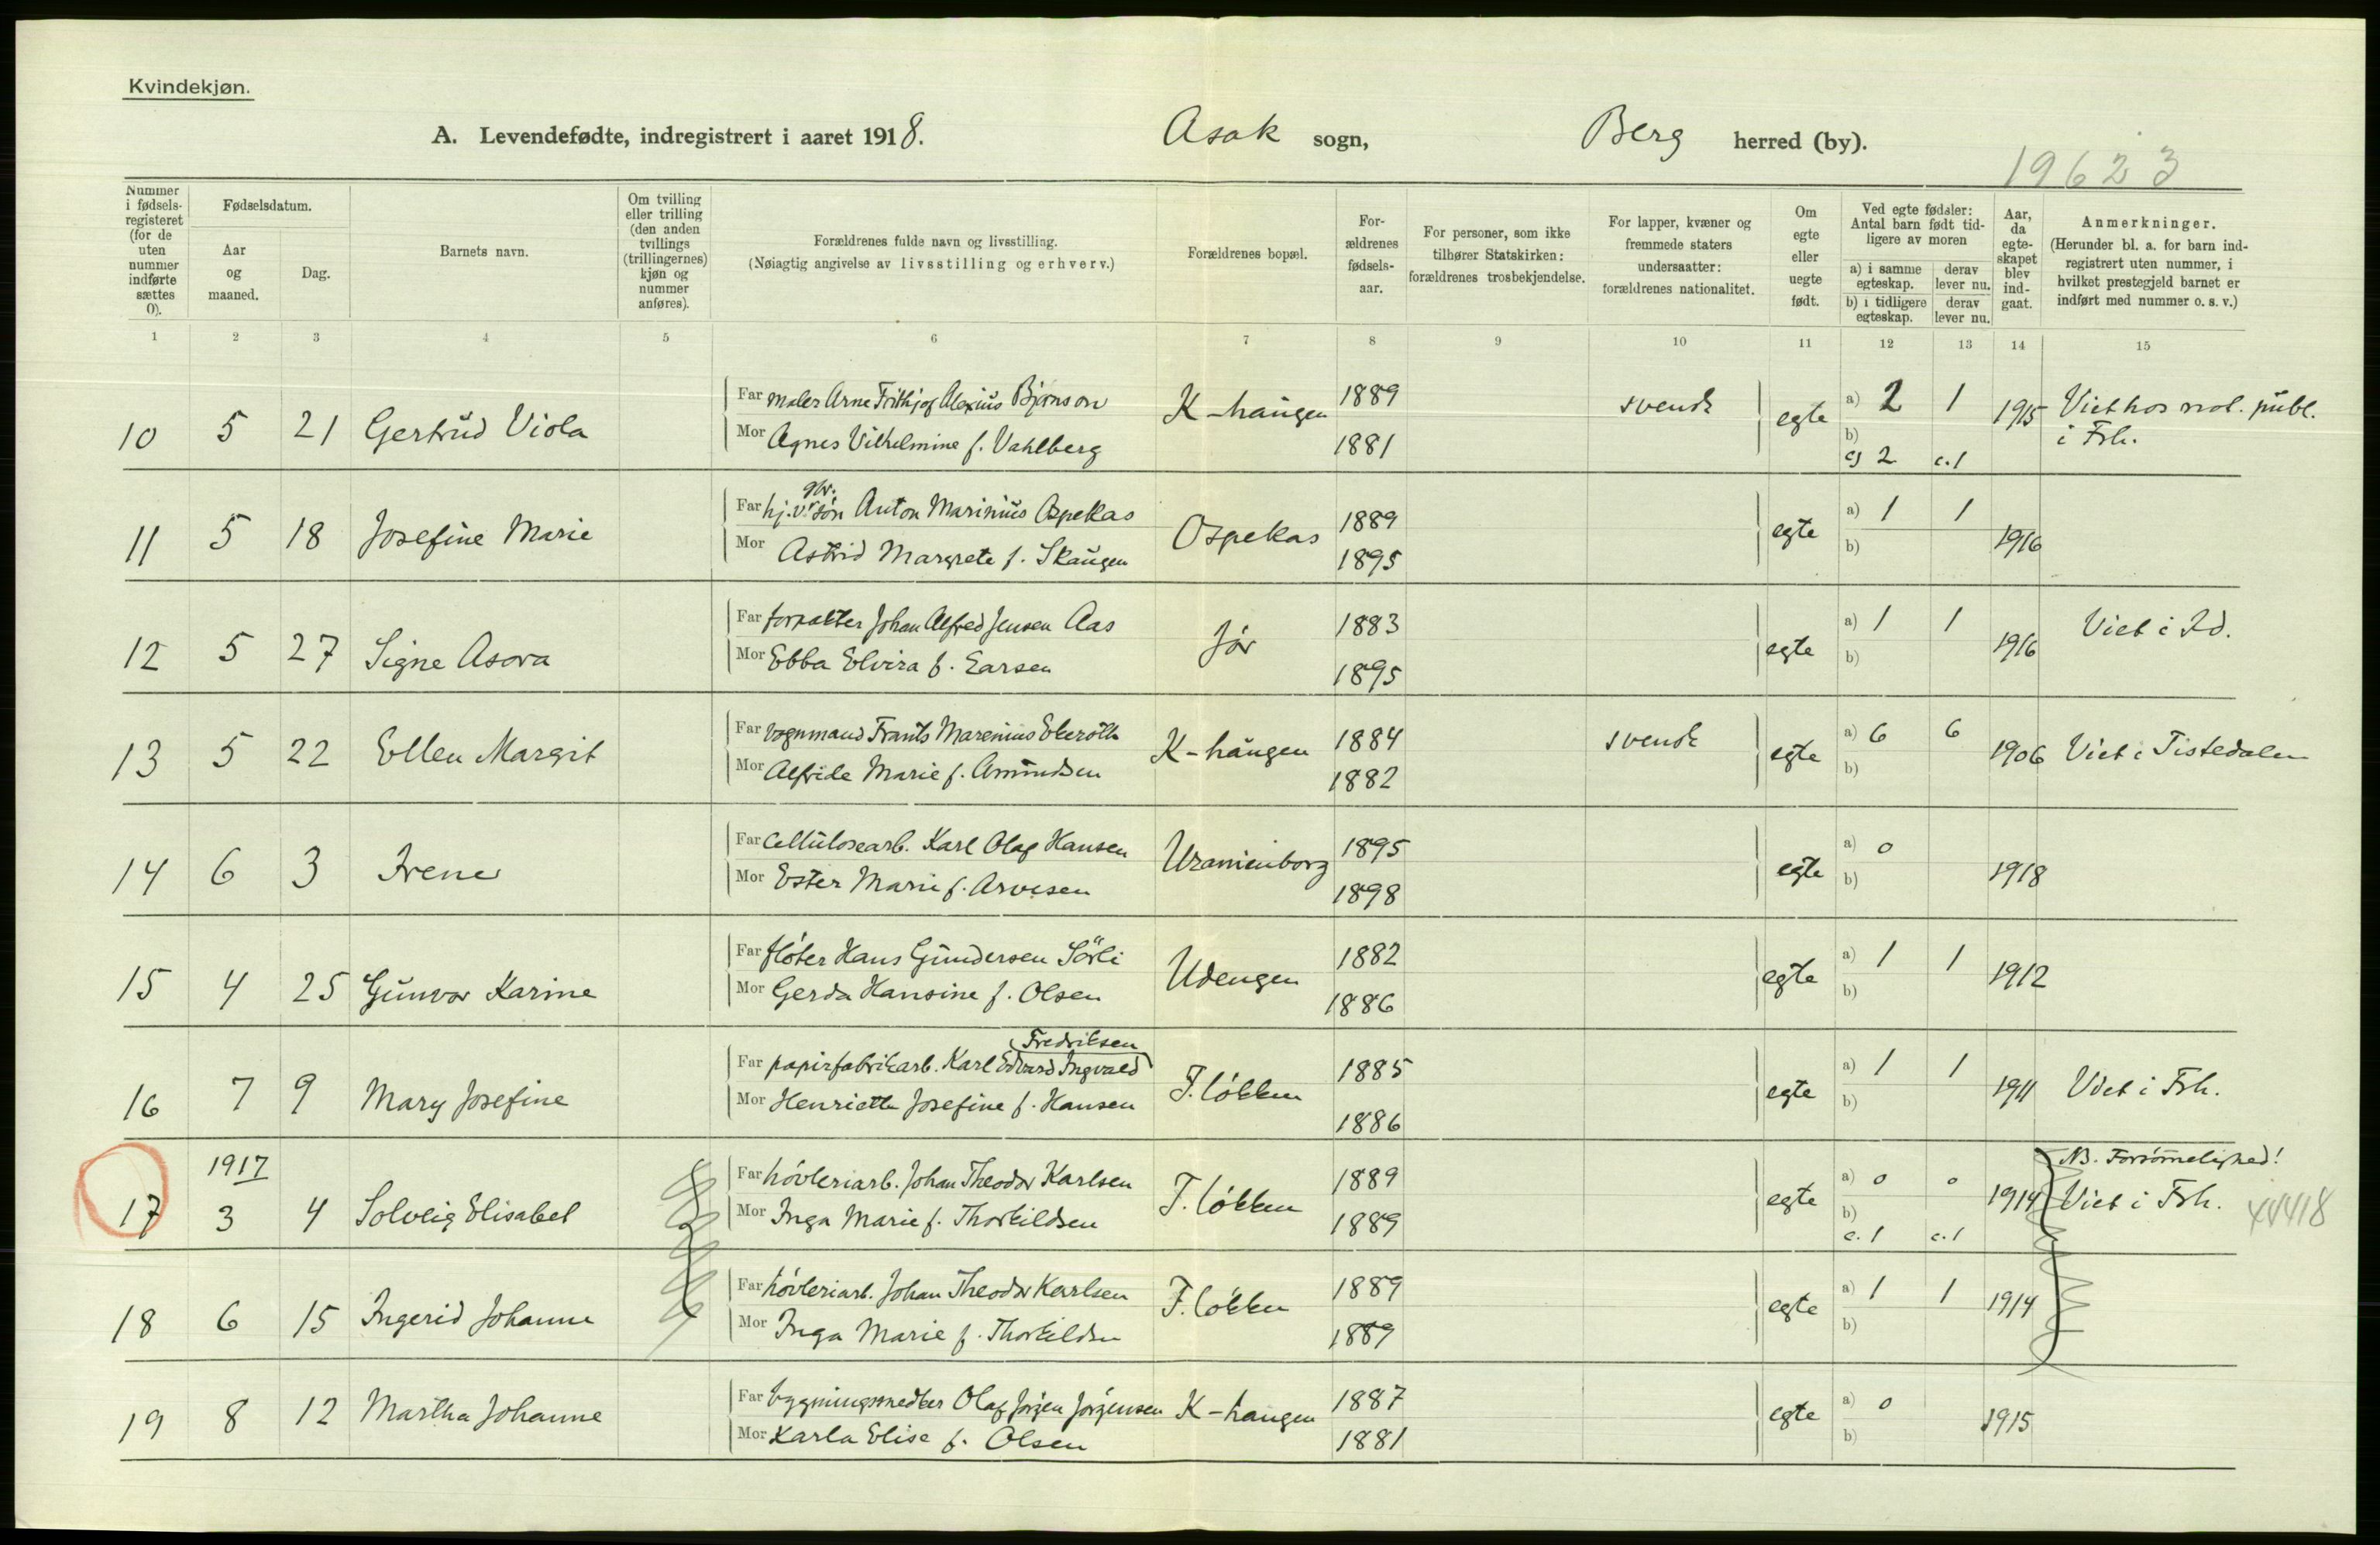 Kvindekjøn.
A. Levendefødte, indregistrert i aaret 1918. Asak sogn, Berg herred (by).
19623
Nummer i fødsels-registeret (for de uten nummer indførte sættes 0).
Fødselsdatum.
Aar og maaned.
Dag.
Barnets navn.
Om tvilling eller trilling (den anden tvillings (trillingernes) kjøn og nummer anføres).
Forældrenes fulde navn og livsstilling.
(Nøiagtig angivelse av livsstilling og erhverv.)
Forældrenes bopæl.
For-ældrenes fødsels-aar.
For personer, som ikke tilhører Statskirken: forældrenes trosbekjendelse.
For lapper, kvæner og fremmede staters undersaatter: forældrenes nationalitet.
Om egte eller uegte født.
Ved egte fødsler: Antal barn født tid-ligere av moren
a) i samme egteskap. derav lever nu.
b) i tidligere egteskap. derav lever nu.
Aar, da egte-skapet blev ind-gaat.
Anmerkninger.
(Herunder bl. a. for barn ind-registrert uten nummer, i hvilket prestegjeld barnet er indført med nummer o. s. v.)
1 2 3 4 5 6 7 8 9 10 11 12 13 14 15
10 5 21 Gertrud Viola
Far maler Arne Frithjof Alexius Bjørnson K-haugen 1889 svensk egte a) 2 1 1915 Viet hos not. publ.
Mor Agnes Vilhelmine f. Vahlberg 1881 b) i Frh.
c) 2 c. 1
11 5 18 Josefine Marie
gbr.
Far hj.v. søn Anton Marinius Ospekas Ospekas 1889 egte a) 1 1 1916
Mor Astrid Margrete f. Skaugen 1895 b)
12 5 27 Signe Asora
Far forpakter Johan Alfred Jensen Aas Jør 1883 egte a) 1 1 1916 Viet i Id.
Mor Ebba Elvira f. Larsen 1895 b)
13 5 22 Ellen Margit
Far vognmand Frants Marenius Ekeroth K-haugen 1884 svensk egte a) 6 6 1906 Viet i Tistedalen
Mor Alfride Marie f. Amundsen 1882 b)
14 6 3 Irene
Far Cellulosearb. Karl Olaf Hansen Uranienborg 1895 egte a) 0 1918
Mor Ester Marie f. Arvesen 1898 b)
15 4 25 Gunvor Karine
Far fløter Hans Gundersen Sörli Udengen 1882 egte a) 1 1 1912
Mor Gerda Hansine f. Olsen 1886 b)
16 7 9 Mary Josefine
Fredriksen
Far papirfabrikarb. Karl Edvard Ingvald T. løkken 1885 egte a) 1 1 1911 Viet i Frh.
Mor Henriette Josefine f. Hansen 1886 b)
1917
17 3 4 Solveig Elisabet
NB. Forsømmelighed!
Far høvleriarb. Johan Theodor Karlsen T. løkken 1889 egte a) 0 0 1914 Viet i Frh. 44418
Mor Inga Marie f. Thorkildsen 1889 b)
c. 1 c. 1
18 6 15 Ingerid Johanne
Far høvleriarb. Johan Theodor Karlsen T. løkken 1889 egte a) 1 1 1914
Mor Inga Marie f. Thorkildsen 1889 b)
19 8 12 Martha Johanne
Far bygningssnedker Olaf Jørgen Jørgensen K-haugen 1887 egte a) 0 1915
Mor Karla Elise f. Olsen 1881 b)